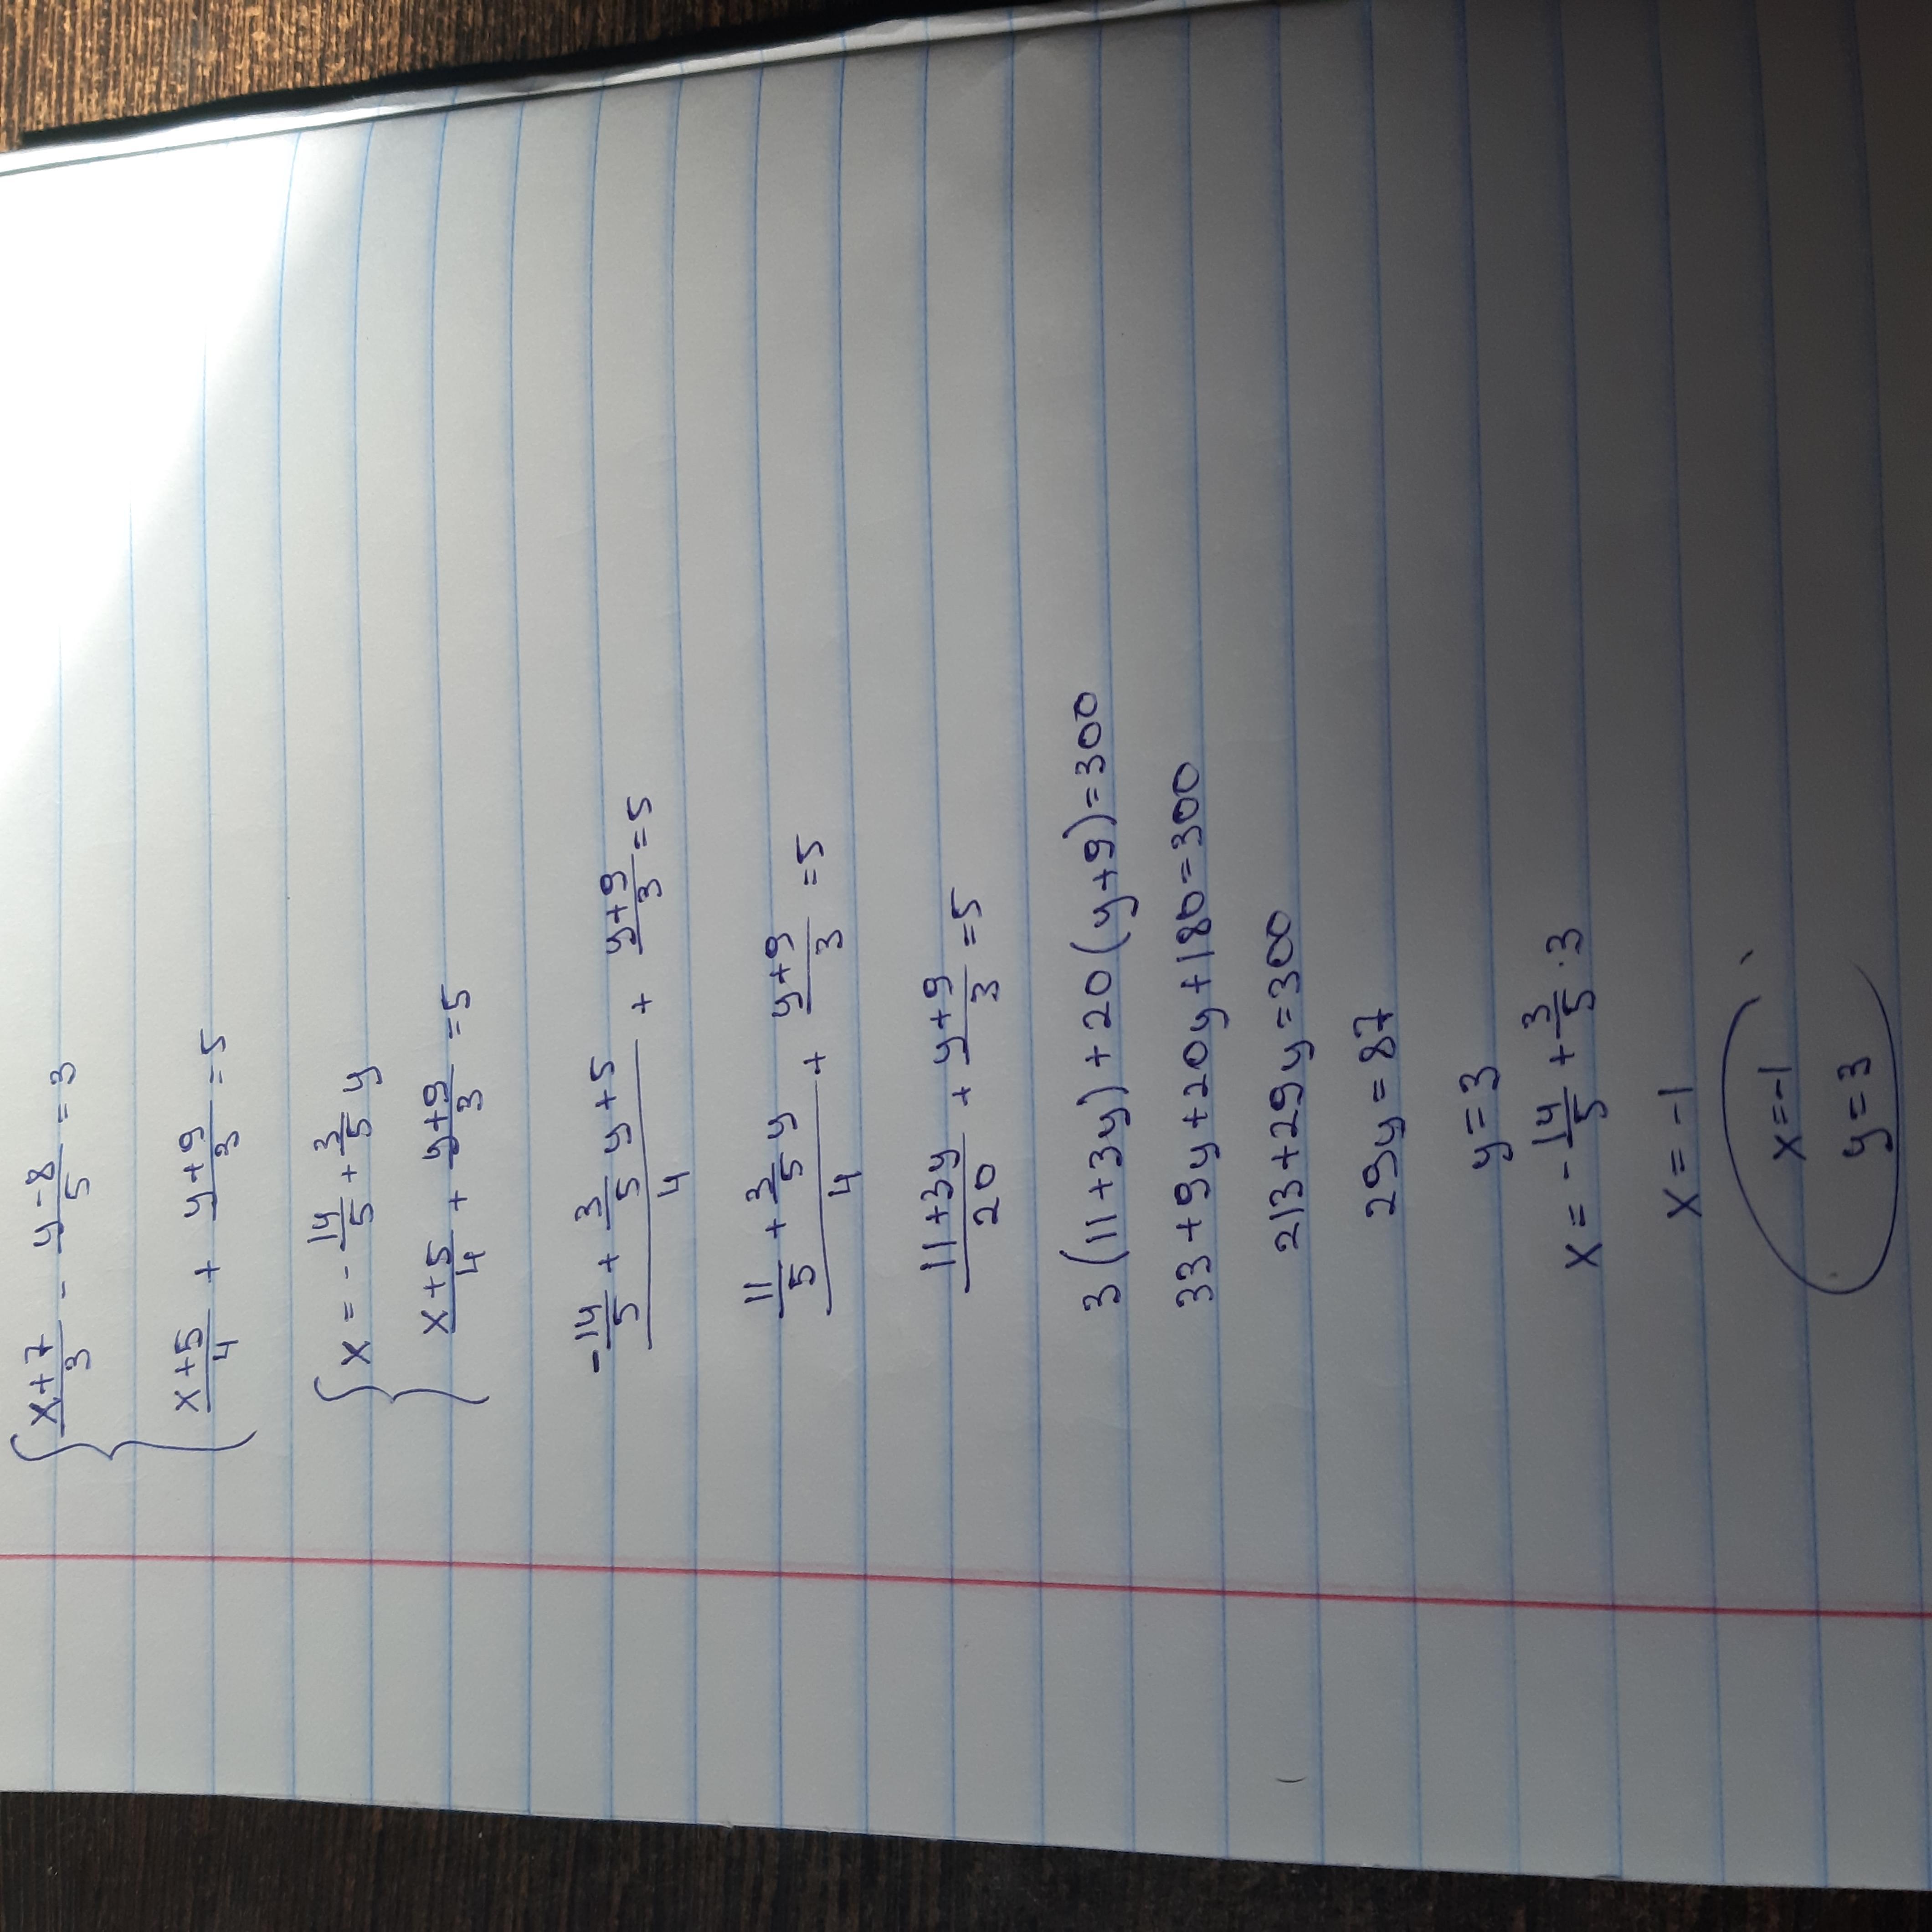 { (x+7)/3 - (y-8)/5 = 3
(x+5)/4 + (y+9)/3 = 5
{ x = -14/5 + 3/5 y
(x+5)/4 + (y+9)/3 = 5
(-14/5 + 3/5 y + 5)/4 + (y+9)/3 = 5
(11/5 + 3/5 y)/4 + (y+9)/3 = 5
(11+3y)/20 + (y+9)/3 = 5
3(11+3y)+20(y+9)=300
33+9y+20y+180=300
213+29y=300
29y=87
y=3
x = -14/5 + 3/5 · 3
x = -1
x=-1
y=3